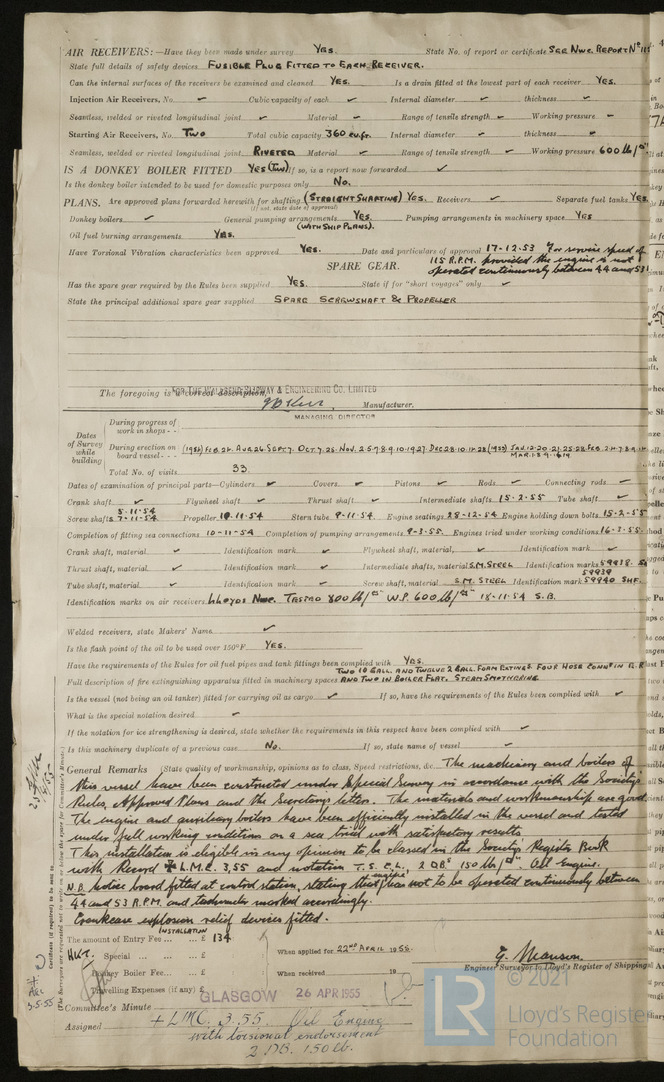 AIR RECEIVERS:—Have they been made under survey Yes. State No. of report or certificate See Nwc. Report No 115
State full details of safety devices Fusible Plug Fitted To Each Receiver.
Can the internal surfaces of the receivers be examined and cleaned Yes. Is a drain fitted at the lowest part of each receiver Yes.
Injection Air Receivers, No. ✓ Cubic capacity of each ✓ Internal diameter ✓ thickness ✓
Seamless, welded or riveted longitudinal joint ✓ Material ✓ Range of tensile strength ✓ Working pressure ✓
Starting Air Receivers, No. Two Total cubic capacity 360 cu.ft. Internal diameter ✓ thickness ✓
Seamless, welded or riveted longitudinal joint Riveted Material ✓ Range of tensile strength ✓ Working pressure 600 lb/□"
IS A DONKEY BOILER FITTED Yes (Two) If so, is a report now forwarded ✓
Is the donkey boiler intended to be used for domestic purposes only No.
PLANS. Are approved plans forwarded herewith for shafting (Straight Shafting) Yes. Receivers ✓ Separate fuel tanks Yes.
(If not, state date of approval)
Donkey boilers ✓ General pumping arrangements Yes. Pumping arrangements in machinery space Yes
(With Ship Plans).
Oil fuel burning arrangements Yes.
Have Torsional Vibration characteristics been approved Yes. Date and particulars of approval 17-12-53 For service speed of
115 R.P.M. provided the engine is not
operated continuously between 44 and 53
SPARE GEAR.
Has the spare gear required by the Rules been supplied Yes. State if for "short voyages" only ✓
State the principal additional spare gear supplied Spare Screwshaft & Propeller
The foregoing is a correct description,
FOR THE WALLSEND SLIPWAY & ENGINEERING CO. LIMITED
Manufacturer.
MANAGING DIRECTOR
Dates of Survey while building
During progress of work in shops - -
During erection on board vessel - - - (1954) Feb.24. Aug.26. Sept.7. Oct.7.26. Nov.2.5.7.8.9.10.19.27. Dec.28.10.14.28 (1955) Jan.12.20.21.25.28 Feb.
Mar.1.3.9.16.19
Total No. of visits 33.
Dates of examination of principal parts—Cylinders ✓ Covers ✓ Pistons ✓ Rods ✓ Connecting rods ✓
Crank shaft ✓ Flywheel shaft ✓ Thrust shaft ✓ Intermediate shafts 15-2-55 Tube shaft ✓
5-11-54
Screw shafts 7-11-54. Propeller 10.11.54 Stern tube 9-11-54. Engine seatings 28-12-54 Engine holding down bolts 15-2-55
Completion of fitting sea connections 10-11-54 Completion of pumping arrangements 9-3-55. Engines tried under working conditions 16-3-55.
Crank shaft, material ✓ Identification mark ✓ Flywheel shaft, material, ✓ Identification mark ✓
Thrust shaft, material ✓ Identification mark ✓ Intermediate shafts, material S.M. Steel Identification marks 59938
59939
Tube shaft, material ✓ Identification mark ✓ Screw shaft, material S.M. Steel Identification mark 59940 SHF.
Identification marks on air receivers Lloyds Nwc. Tested 800 lb/□" W.P. 600 lb/□" 18-11-54 S.B.
Welded receivers, state Makers' Name ✓
Is the flash point of the oil to be used over 150°F Yes.
Have the requirements of the Rules for oil fuel pipes and tank fittings been complied with Yes.
Two 10 Gall. and Twelve 2 Gall. Foam Extings. Four Hose Conns in E.R.
Full description of fire extinguishing apparatus fitted in machinery spaces and Two in Boiler Flat. Steam Smothering
Is the vessel (not being an oil tanker) fitted for carrying oil as cargo ✓ If so, have the requirements of the Rules been complied with ✓
What is the special notation desired ✓
If the notation for ice strengthening is desired, state whether the requirements in this respect have been complied with ✓
Is this machinery duplicate of a previous case No. If so, state name of vessel ✓
General Remarks (State quality of workmanship, opinions as to class, Speed restrictions, &c. The machinery and boilers of
this vessel have been constructed under Special Survey in accordance with the Society's
Rules, Approved Plans and the Secretary's letters. The materials and workmanship are good.
The engine and auxiliary boilers have been efficiently installed in the vessel and tested
under full working conditions on a sea trial with satisfactory results
This installation is eligible in my opinion to be classed in the Society's Register Book
with Record ✠ L.M.C. 3,55 and notation T.S. C.L., 2 D.B.s 150 lb/□" Oil Engine.
N.B. Notice board fitted at control station, stating that engine has not to be operated continuously between
44 and 53 R.P.M. and tachometer marked accordingly.
Crankcase explosion relief devices fitted.
INSTALLATION
The amount of Entry Fee ... £ 134
Special ... £
Donkey Boiler Fee ... £
Travelling Expenses (if any) £
When applied for 22nd April 1955.
When received 19
G. Manson.
Engineer Surveyor to Lloyd's Register of Shipping
GLASGOW 26 APR 1955
Committee's Minute
Assigned + LMC. 3,55. Oil Engine
with torsional endorsement
2 DB. 150 lb.
Certificate (if required) to be sent to
(The Surveyors are requested not to write on or below the space for Committee's Minute.)
© 2021
LR
Lloyd's Register
Foundation